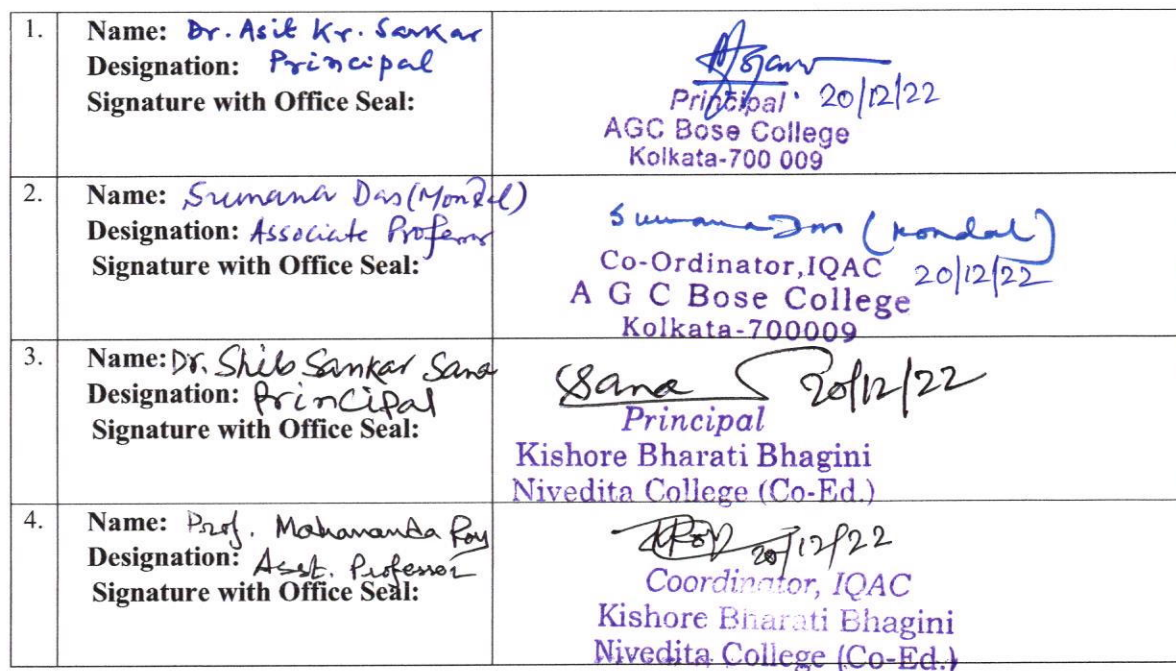 1.
Name: Dr. Asit Kr. Sarkar
Designation: Principal
Signature with Office Seal:
20/12/22
Principal
AGC Bose College
Kolkata-700 009
2.
Name: Sumana Das (Mondal)
Designation: Associate Professor
Signature with Office Seal:
Sumana Das (Mondal)
20/12/22
Co-Ordinator,IQAC
A G C Bose College
Kolkata-700009
3.
Name: Dr. Shib Sankar Sana
Designation: Principal
Signature with Office Seal:
SSana 20/12/22
Principal
Kishore Bharati Bhagini
Nivedita College (Co-Ed.)
4.
Name: Prof. Mahananda Roy
Designation: Asst. Professor
Signature with Office Seal:
20/12/22
Coordinator, IQAC
Kishore Bharati Bhagini
Nivedita College (Co-Ed.)